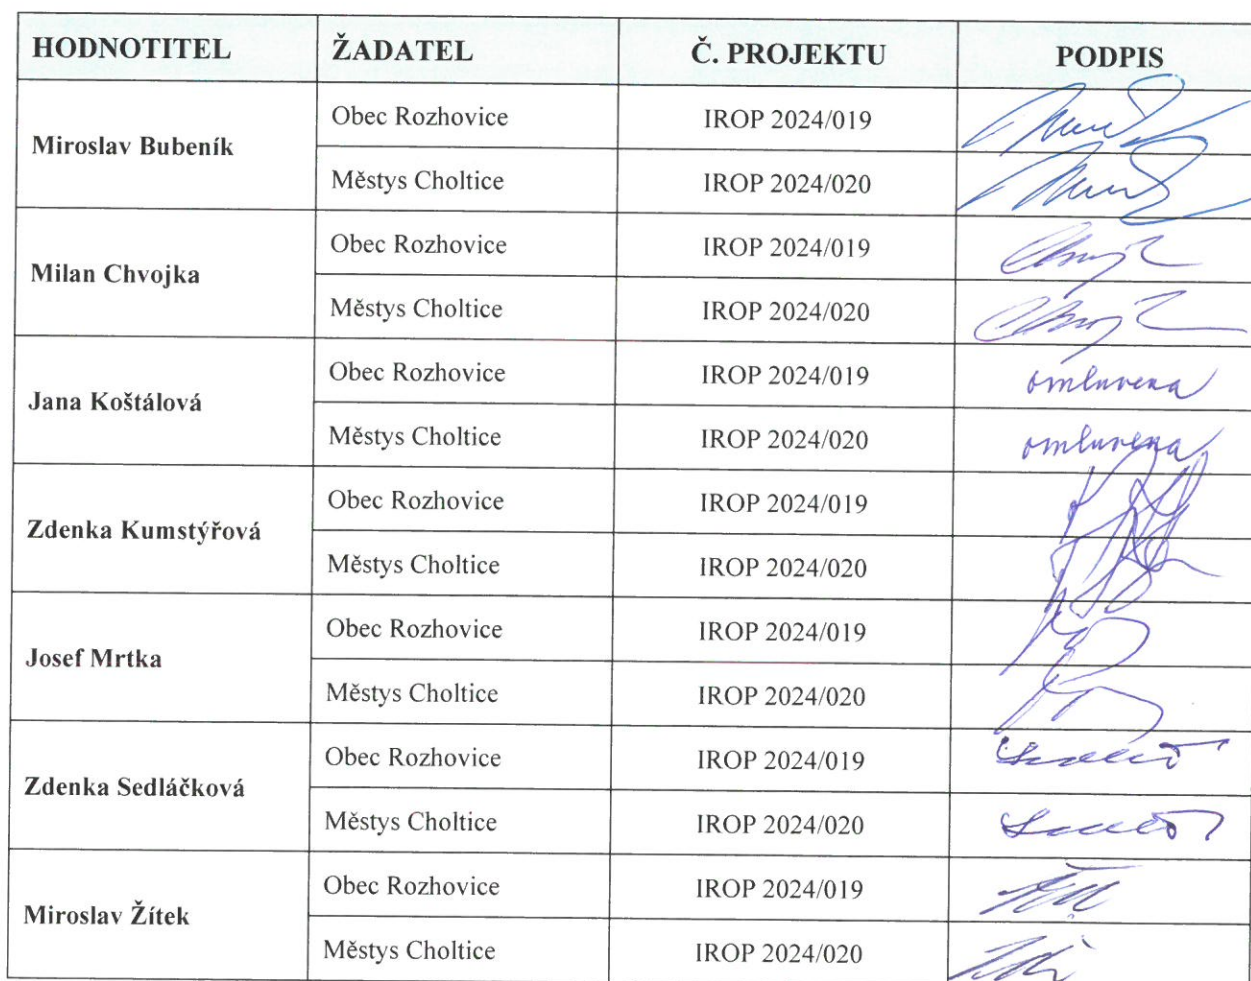 HODNOTITEL ŽADATEL Č. PROJEKTU PODPIS
Miroslav Bubeník
Obec Rozhovice IROP 2024/019
Městys Choltice IROP 2024/020
Milan Chvojka
Obec Rozhovice IROP 2024/019
Městys Choltice IROP 2024/020
Jana Koštálová
Obec Rozhovice IROP 2024/019 omluvena
Městys Choltice IROP 2024/020 omluvena
Zdenka Kumstýřová
Obec Rozhovice IROP 2024/019
Městys Choltice IROP 2024/020
Josef Mrtka
Obec Rozhovice IROP 2024/019
Městys Choltice IROP 2024/020
Zdenka Sedláčková
Obec Rozhovice IROP 2024/019
Městys Choltice IROP 2024/020
Miroslav Žítek
Obec Rozhovice IROP 2024/019
Městys Choltice IROP 2024/020